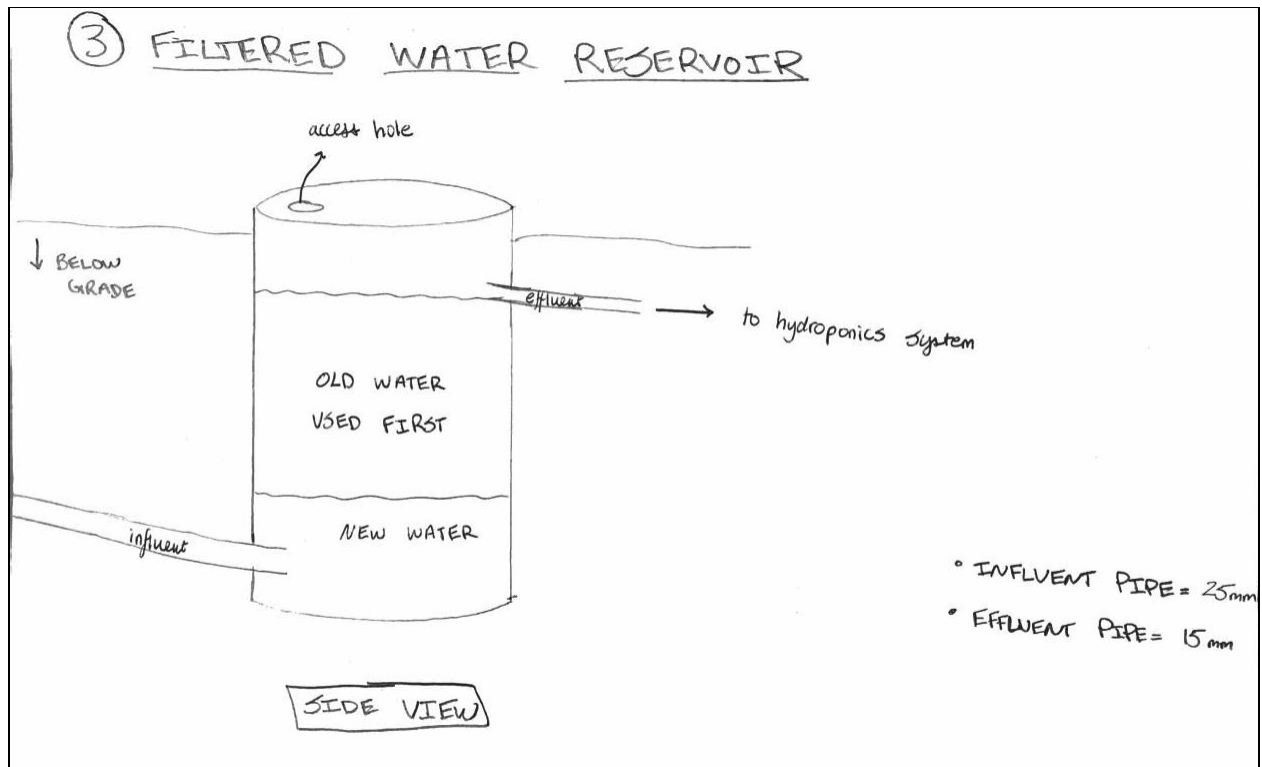 3 FILTERED WATER RESERVOIR
access hole
↓ BELOW
GRADE
effluent
→ to hydroponics system
OLD WATER
USED FIRST
influent
NEW WATER
• INFLUENT PIPE = 25mm
• EFFLUENT PIPE = 15mm
SIDE VIEW